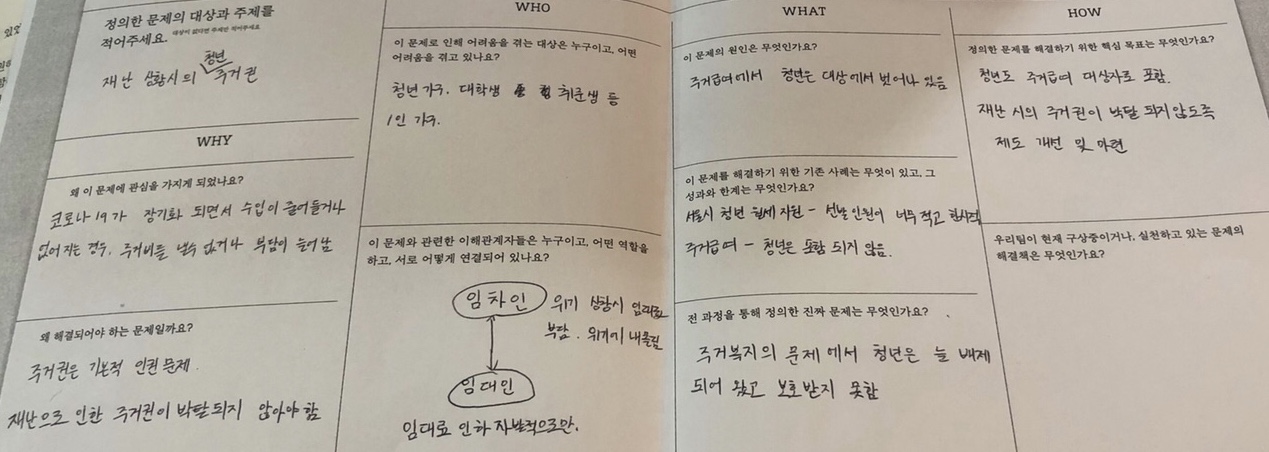 정의한 문제의 대상과 주제를
적어주세요. 대상이 없다면 주제만 적어주세요
청년
재난 상황시의 주거권
WHY
왜 이 문제에 관심을 가지게 되었나요?
코로나19가 장기화 되면서 수입이 줄어들거나
없어지는 경우, 주거비를 낼수 없거나 부담이 늘어남
왜 해결되어야 하는 문제일까요?
주거권은 기본적 인권 문제.
재난으로 인한 주거권이 박탈되지 않아야 함
WHO
이 문제로 인해 어려움을 겪는 대상은 누구이고, 어떤
어려움을 겪고 있나요?
청년가구. 대학생 취준생 등
1인 가구.
이 문제와 관련한 이해관계자들은 누구이고, 어떤 역할을
하고, 서로 어떻게 연결되어 있나요?
임차인 위기 상황시 임대료
부담. 위기에 내몰림
임대인
임대료 인하 자발적으로만.
WHAT
이 문제의 원인은 무엇인가요?
주거급여에서 청년은 대상에서 벗어나 있음
이 문제를 해결하기 위한 기존 사례는 무엇이 있고, 그
성과와 한계는 무엇인가요?
서울시 청년 월세 지원 - 선발인원이 너무 적고 한시적
주거급여 - 청년은 포함 되지 않음.
전 과정을 통해 정의한 진짜 문제는 무엇인가요?
주거복지의 문제에서 청년은 늘 배제
되어 왔고 보호받지 못함
HOW
정의한 문제를 해결하기 위한 핵심 목표는 무엇인가요?
청년도 주거급여 대상자로 포함.
재난 시의 주거권이 박탈 되지않도록
제도 개선 및 마련
우리팀이 현재 구상중이거나, 실천하고 있는 문제의
해결책은 무엇인가요?